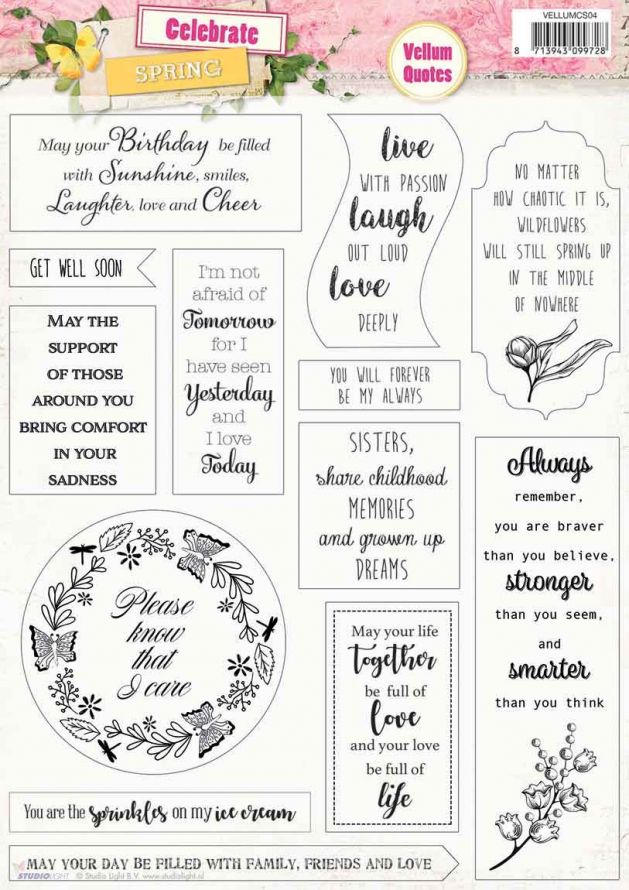 Celebrate
SPRING
Vellum
Quotes
VELLUMCS04
8 713943 099728
May your Birthday be filled
with Sunshine, smiles,
Laughter, love and Cheer
live
WITH PASSION
laugh
OUT LOUD
love
DEEPLY
NO MATTER
HOW CHAOTIC IT IS,
WILDFLOWERS
WILL STILL SPRING UP
IN THE MIDDLE
OF NOWHERE
GET WELL SOON
I'm not
afraid of
Tomorrow
for I
have seen
Yesterday
and
I love
Today
MAY THE
SUPPORT
OF THOSE
AROUND YOU
BRING COMFORT
IN YOUR
SADNESS
YOU WILL FOREVER
BE MY ALWAYS
SISTERS,
share childhood
MEMORIES
and grown up
DREAMS
Always
remember,
you are braver
than you believe,
stronger
than you seem,
and
smarter
than you think
Please
know
that
I care
May your life
together
be full of
love
and your love
be full of
life
You are the sprinkles on my ice cream
MAY YOUR DAY BE FILLED WITH FAMILY, FRIENDS AND LOVE
STUDIOLIGHT © Studio Light B.V. www.studiolight.nl